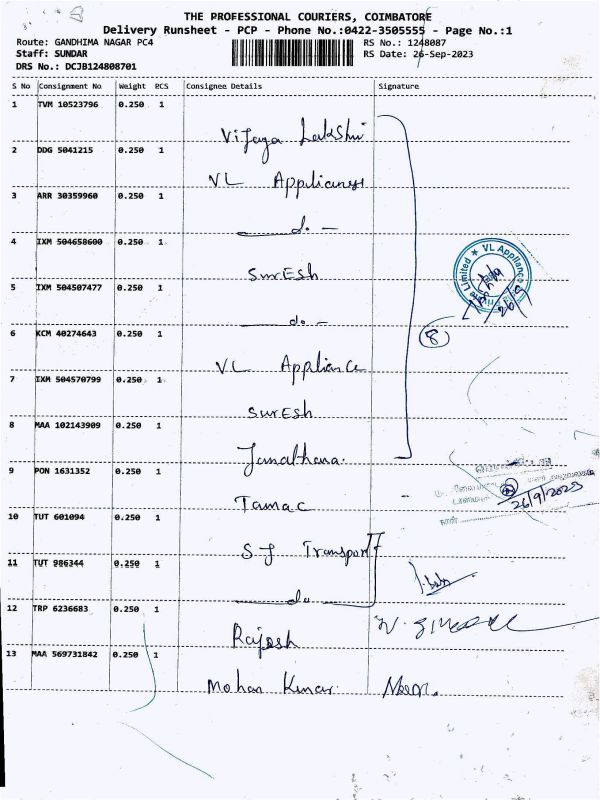 THE PROFESSIONAL COURIERS, COIMBATORE
Delivery Runsheet - PCP - Phone No.:0422-3505555 - Page No.:1
Route: GANDHIMA NAGAR PC4 RS No.: 1248087
Staff: SUNDAR RS Date: 26-Sep-2023
DRS No.: DCJB124808701
S No Consignment No Weight PCS Consignee Details Signature
1 TVM 10523796 0.250 1
Vijaya Lakshmi
2 DDG 5041215 0.250 1
VL Appliances
3 ARR 30359960 0.250 1
— do —
4 IXM 504658600 0.250 1
SurESh
VL Appliance
26/9
5 IXM 504507477 0.250 1
— do —
6 KCM 40274643 0.250 1
8
VL Appliance
7 IXM 504570799 0.250 1
SurESh
8 MAA 102143909 0.250 1
9 PON 1631352 0.250 1
26/9/2023
Tamac
10 TUT 601094 0.250 1
SJ Transport
11 TUT 986344 0.250 1
— do
12 TRP 6236683 0.250 1
Rajesh
13 MAA 569731842 0.250 1
Mohan Kumar.